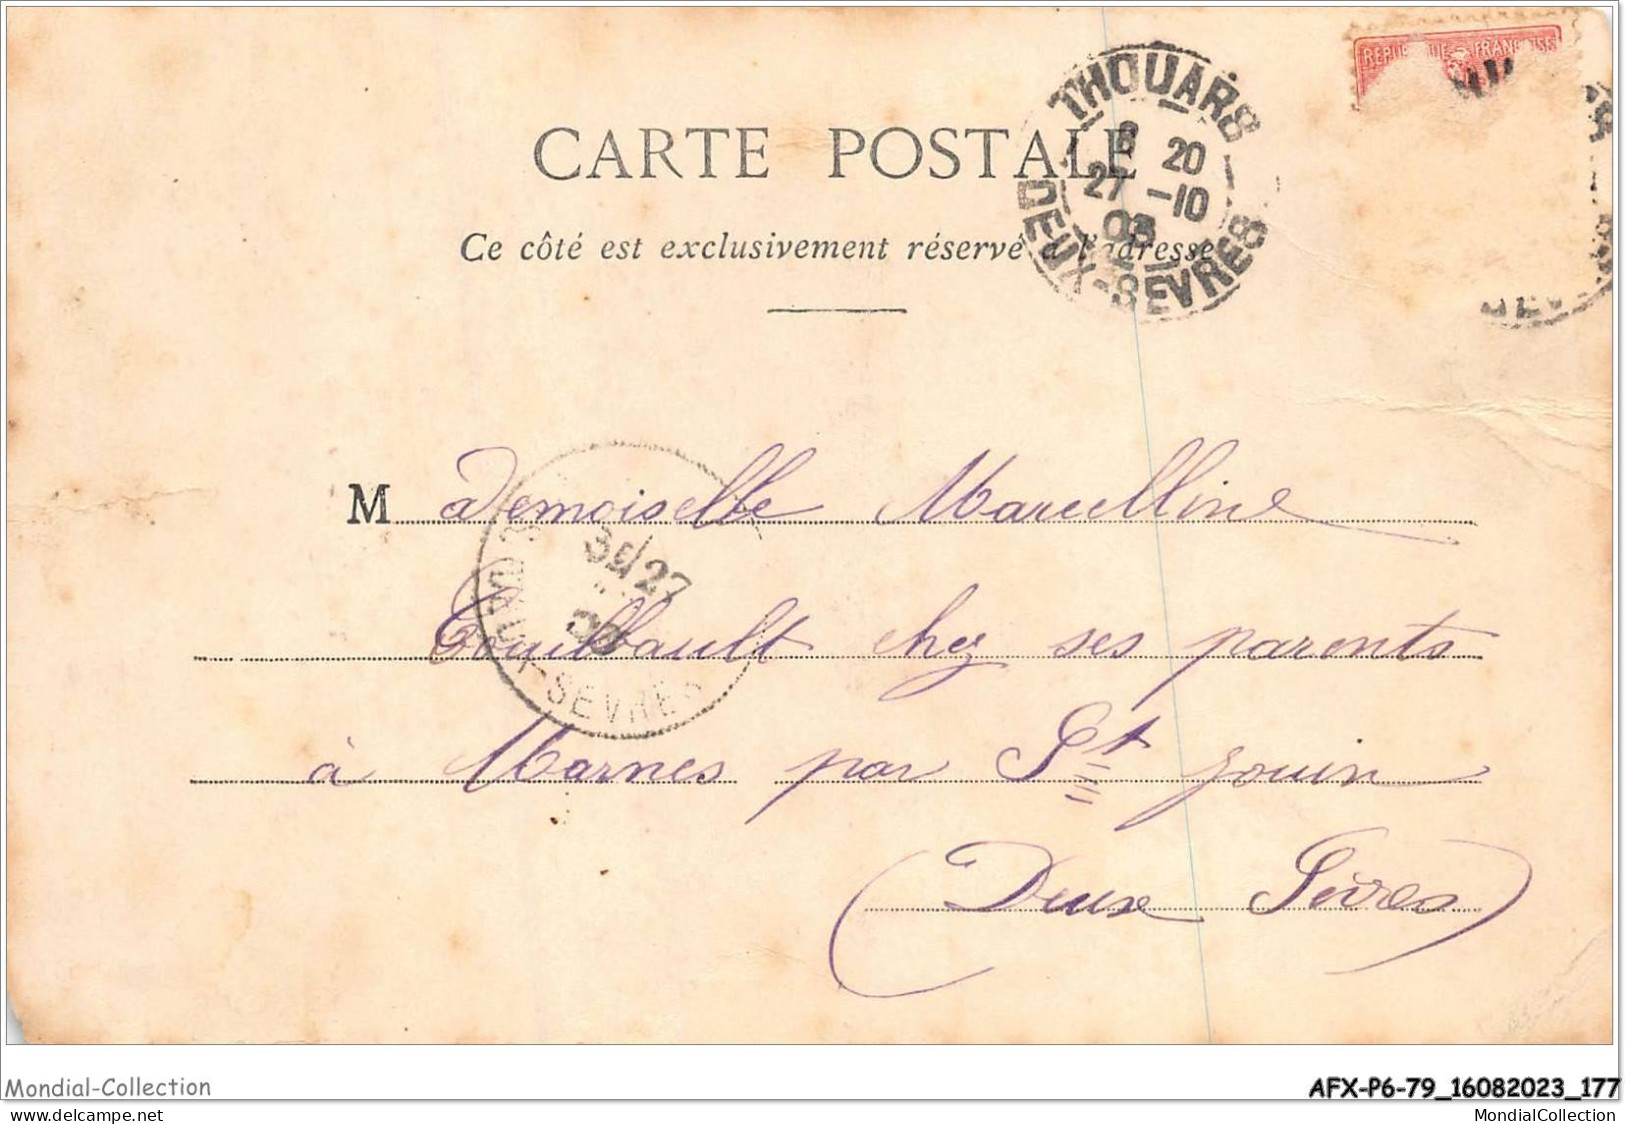 RÉPUBLIQUE FRANÇAISE
THOUARS
8 20
27 -10
03
DEUX-SEVRES
CARTE POSTALE
Ce côté est exclusivement réservé à l'adresse
Mademoiselle Marcelline
3E/27
SEVRES
chez ses parents
à Marnes par St Jouin
(Deux Sèvres)
Mondial-Collection
AFX-P6-79_16082023_177
www.delcampe.net
MondialCollection